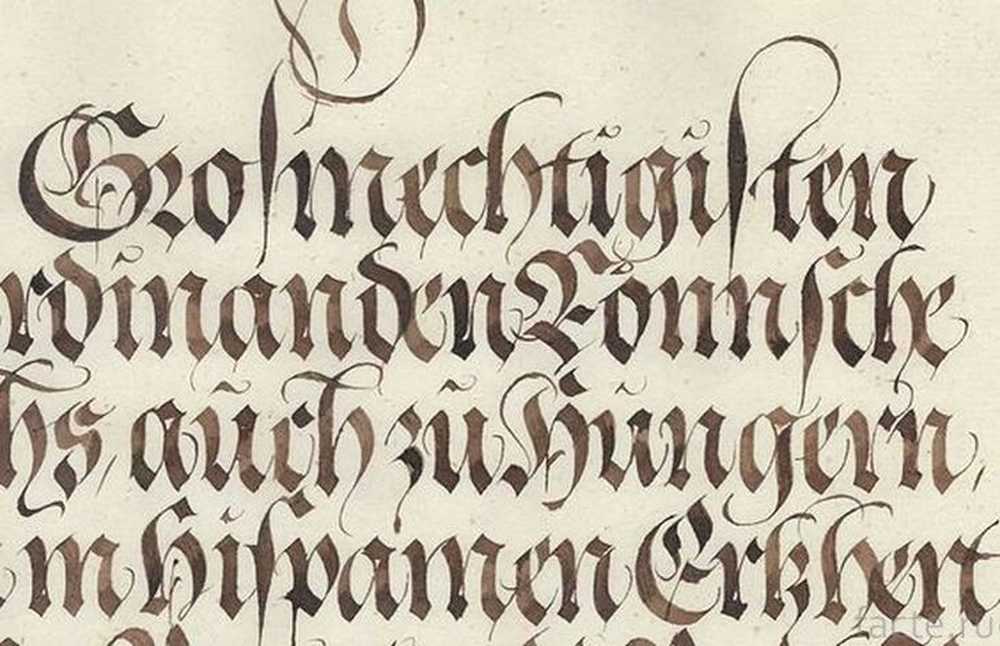 Groſmechtigiſten
rdinanden Römſche
hs, auch zu Hungern,
m Hiſpanien Ertzhert
farte.ru